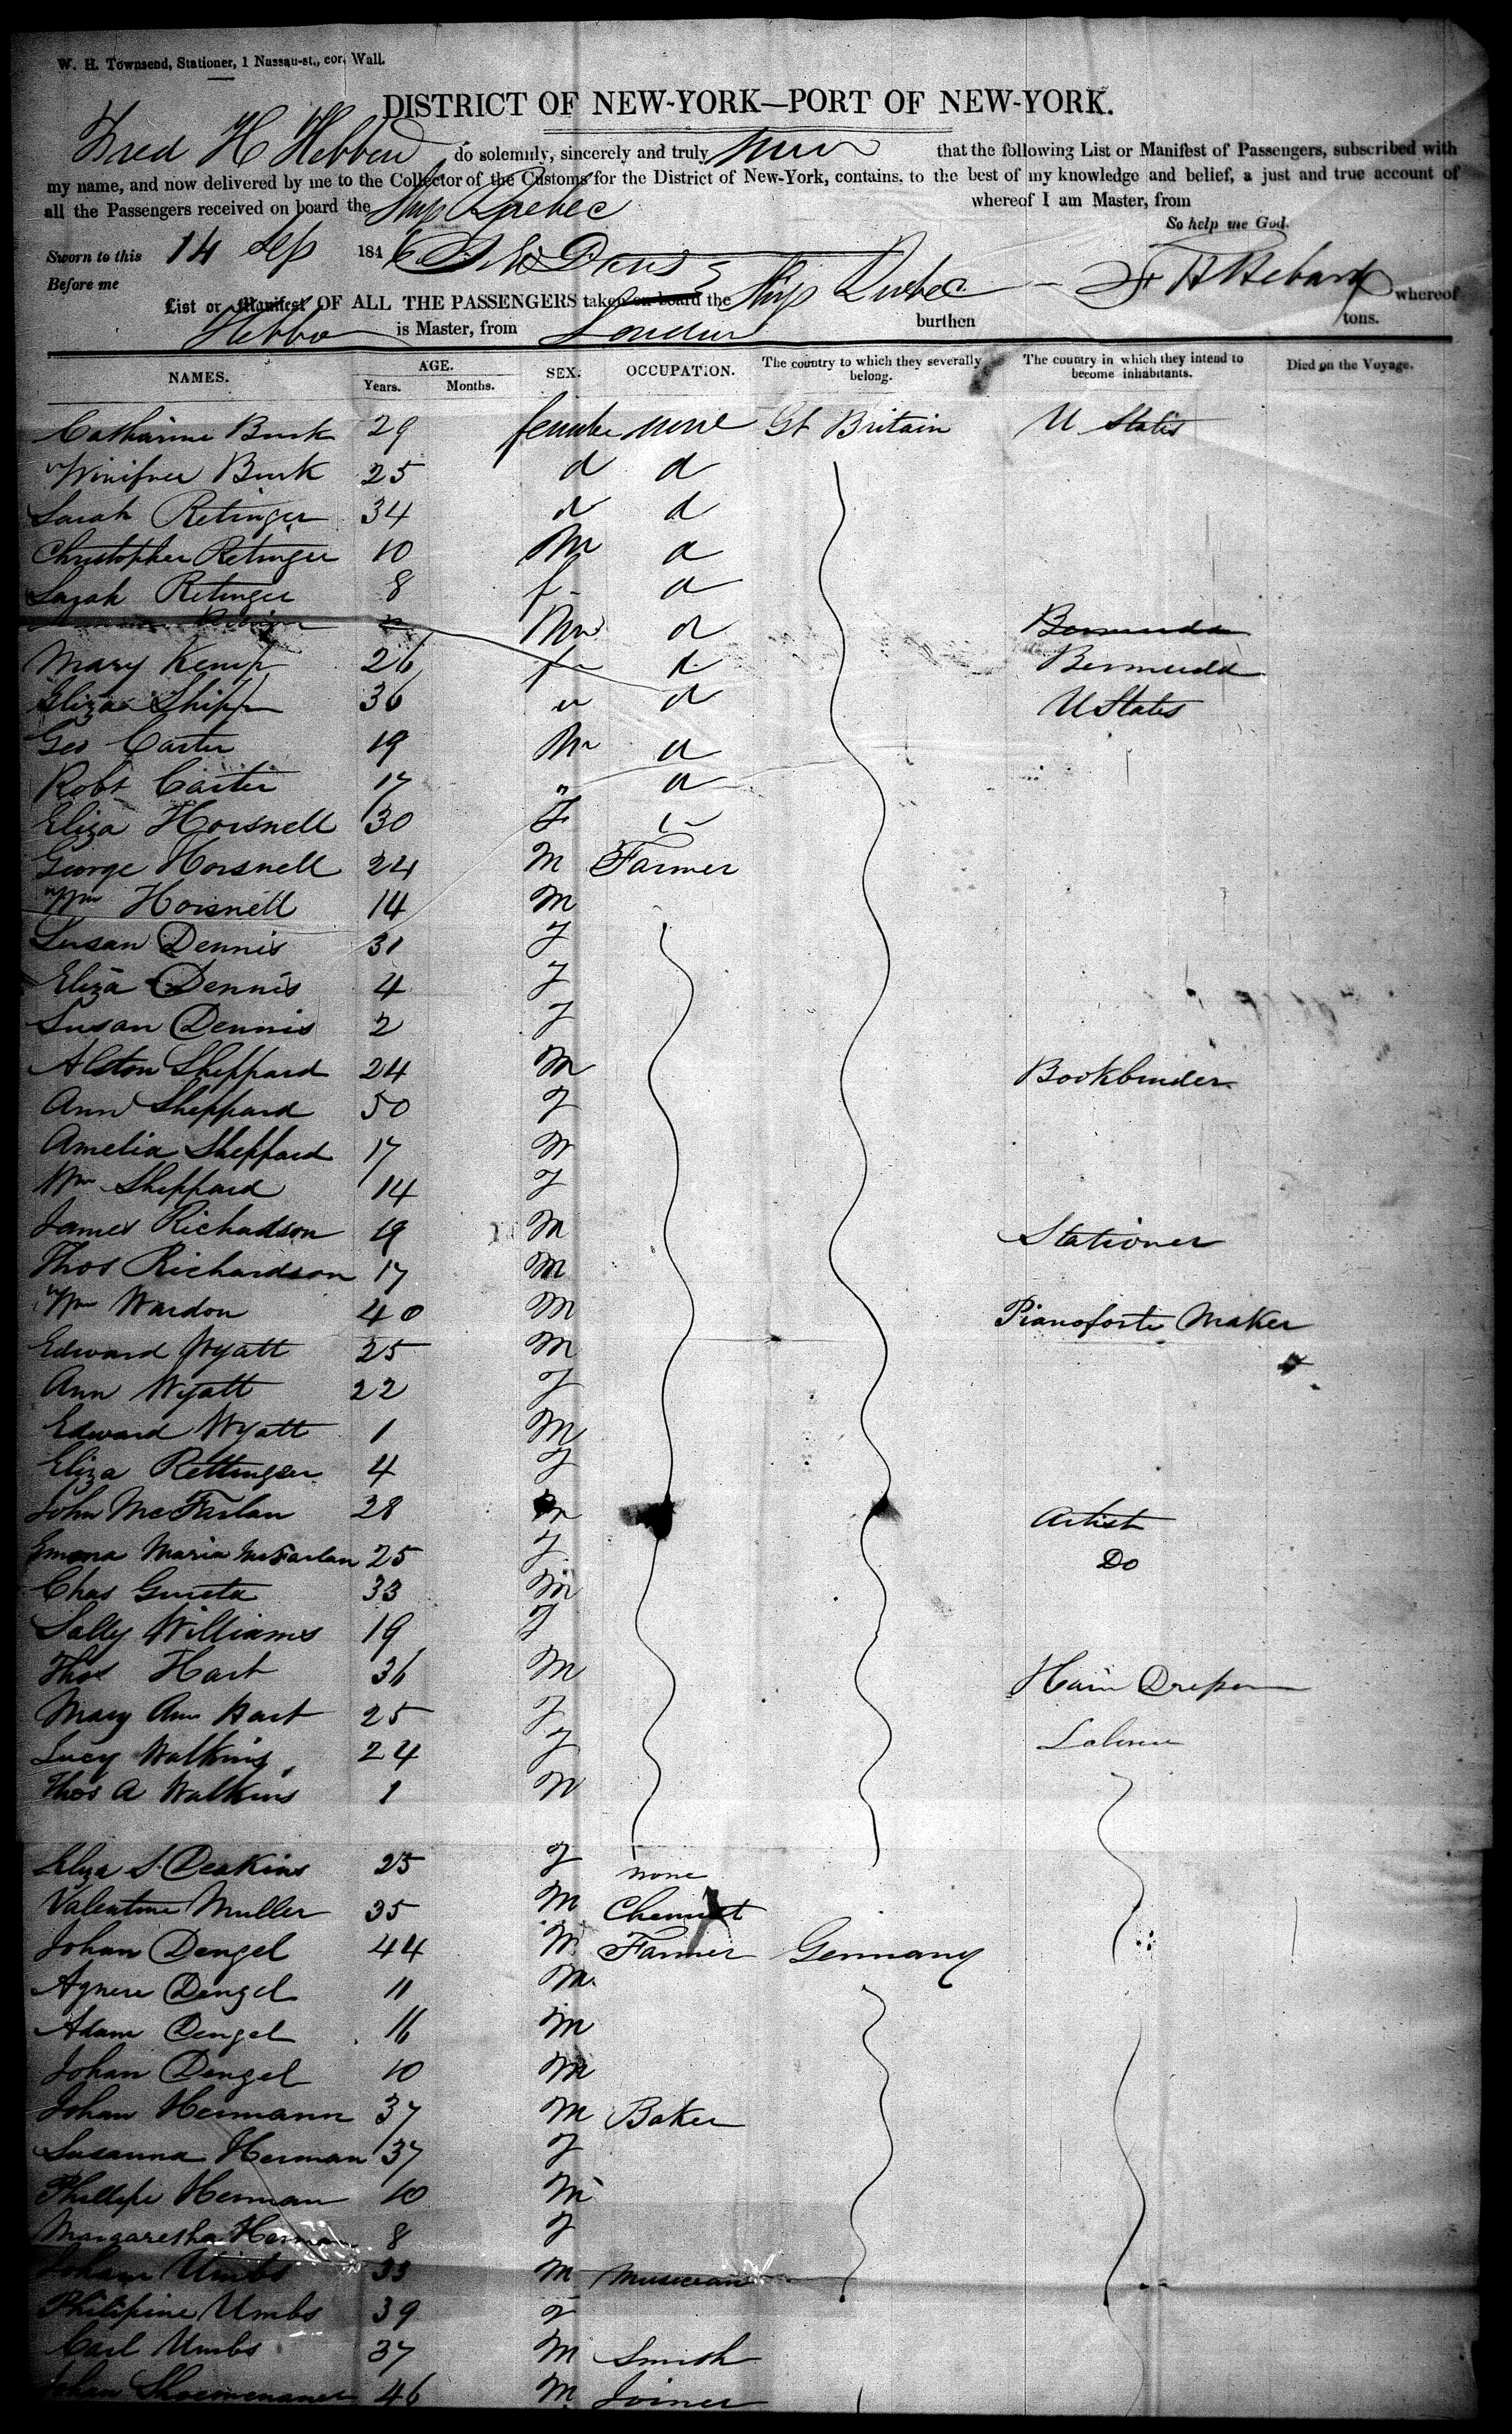 W. H. Townsend, Stationer, 1 Nassau-st., cor. Wall.
DISTRICT OF NEW-YORK—PORT OF NEW-YORK.
Fred H Hebbard do solemnly, sincerely and truly that the following List or Manifest of Passengers, subscribed with
my name, and now delivered by me to the Collector of the Customs for the District of New-York, contains, to the best of my knowledge and belief, a just and true account of
all the Passengers received on board the Ship Quebec whereof I am Master, from
So help me God.
Sworn to this 14 Sep 1846
Before me
List or Manifest OF ALL THE PASSENGERS taken on board the Ship Quebec F H Hebard whereof
is Master, from London burthen tons.
NAMES. AGE. SEX. OCCUPATION. The country to which they severally belong. The country in which they intend to become inhabitants. Died on the Voyage.
Years. Months.
Catharine Burk 29 female none Gt Britain U States
Winifree Burk 25 d d
Sarah Retinger 34 d d
Christopher Retinger 10 M d
Sarah Retinger 8 f d
M d Bermuda
Mary Kemp 26 f d Bermuda
Eliza Shipp 36 d U States
Geo Carter 19 M d
Robt Carter 17 " d
Eliza Horsnell 30 F
George Horsnell 24 M Farmer
Wm Horsnell 14 M
Susan Dennis 31 F
Eliza Dennis 4 F
Susan Dennis 2 F
Alston Sheppard 24 M Bookbinder
Ann Sheppard 50 F
Amelia Sheppard 17 M
Wm Sheppard 14 F
James Richadson 19 M Stationer
Thos Richardson 17 M
Wm Wardon 40 M Pianoforte Maker
Edward Wyatt 25 M
Ann Wyatt 22 F
Edward Wyatt 1 M
Eliza Rettinger 4 F
John McFarlan 28 M Artist
Emma Maria McFarlan 25 F Do
Chas 33 M
Sally Williams 19 F
Thos Hart 36 M Hair
Mary Ann Hart 25 F
Lucy Walkins 24 F
Thos A Walkins 1 M
Eliza S. Deakins 25 F none
Valentine Muller 35 M Chemist
Johan Dengel 44 M Farmer Germany
Agnese Dengel 11 M
Adam Dengel 16 M
Johan Dengel 10 M
Johan Hermann 37 M Baker
Susanna Herman 37 F
Phillipe Herman 10 M
Margaretha Herman 8 F
Johann Umbs 33 M Musician
Philipine Umbs 39 F
Carl Umbs 37 M Smith
Johan 46 M Joiner